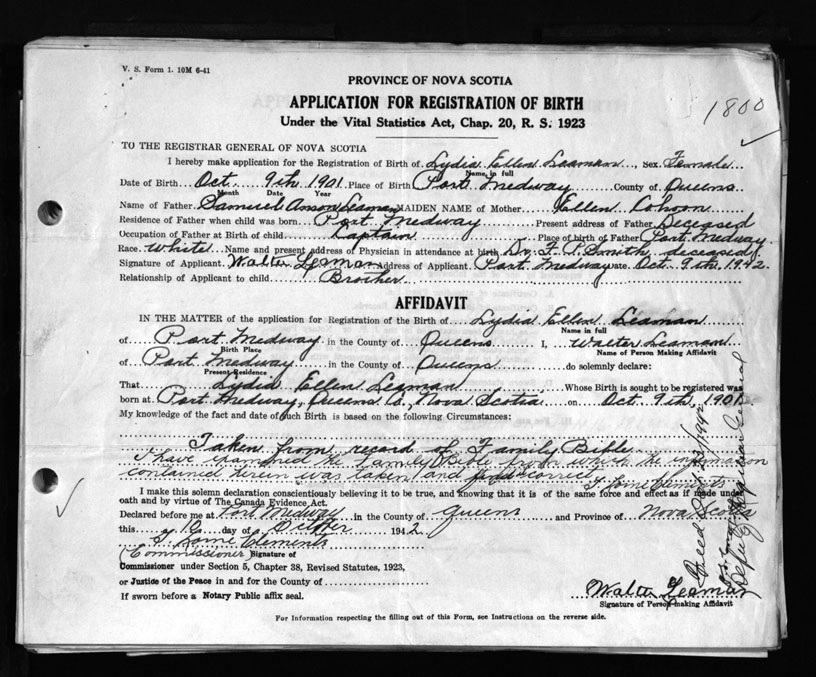 V. S. Form 1. 10M 6-41
PROVINCE OF NOVA SCOTIA
APPLICATION FOR REGISTRATION OF BIRTH
Under the Vital Statistics Act, Chap. 20, R. S. 1923
1800
TO THE REGISTRAR GENERAL OF NOVA SCOTIA
I hereby make application for the Registration of Birth of Lydia Ellen Leaman, Sex Female
Name in full
Date of Birth Oct. 9th 1901 Place of Birth Port Medway County of Queens
Month Date Year
Name of Father Samuel Anson Leaman MAIDEN NAME of Mother Ellen Cohoon
Residence of Father when child was born Port Medway Present address of Father Deceased
Occupation of Father at Birth of child Captain Place of birth of Father Port Medway
Race White Name and present address of Physician in attendance at birth Dr. F. P. Smith deceased
Signature of Applicant Walter Leaman Address of Applicant Port Medway Date Oct 9th 1942
Relationship of Applicant to child Brother
AFFIDAVIT
IN THE MATTER of the application for Registration of the Birth of Lydia Ellen Leaman
Name in full
of Port Medway in the County of Queens I, Walter Leaman
Birth Place Name of Person Making Affidavit
of Port Medway in the County of Queens do solemnly declare:
Present Residence
That Lydia Ellen Leaman Whose Birth is sought to be registered was
born at Port Medway, Queens Co., Nova Scotia on Oct 9th, 1901
My knowledge of the fact and date of such Birth is based on the following Circumstances:
Taken from record of Family Bible
I have examined the family Bible from which the information
contained herein was taken and find correct.
I make this solemn declaration conscientiously believing it to be true, and knowing that it is of the same force and effect as if made under
oath and by virtue of The Canada Evidence Act.
Declared before me at Port Medway in the County of Queens and Province of Nova Scotia
this 10 day of October 1942
Clements
Commissioner Signature of
Commissioner under Section 5, Chapter 38, Revised Statutes, 1923,
or Justice of the Peace in and for the County of
If sworn before a Notary Public affix seal.
Walter Leaman
Signature of Person making Affidavit
For Information respecting the filling out of this Form, see Instructions on the reverse side.
Filed 1942
Deputy Registrar General